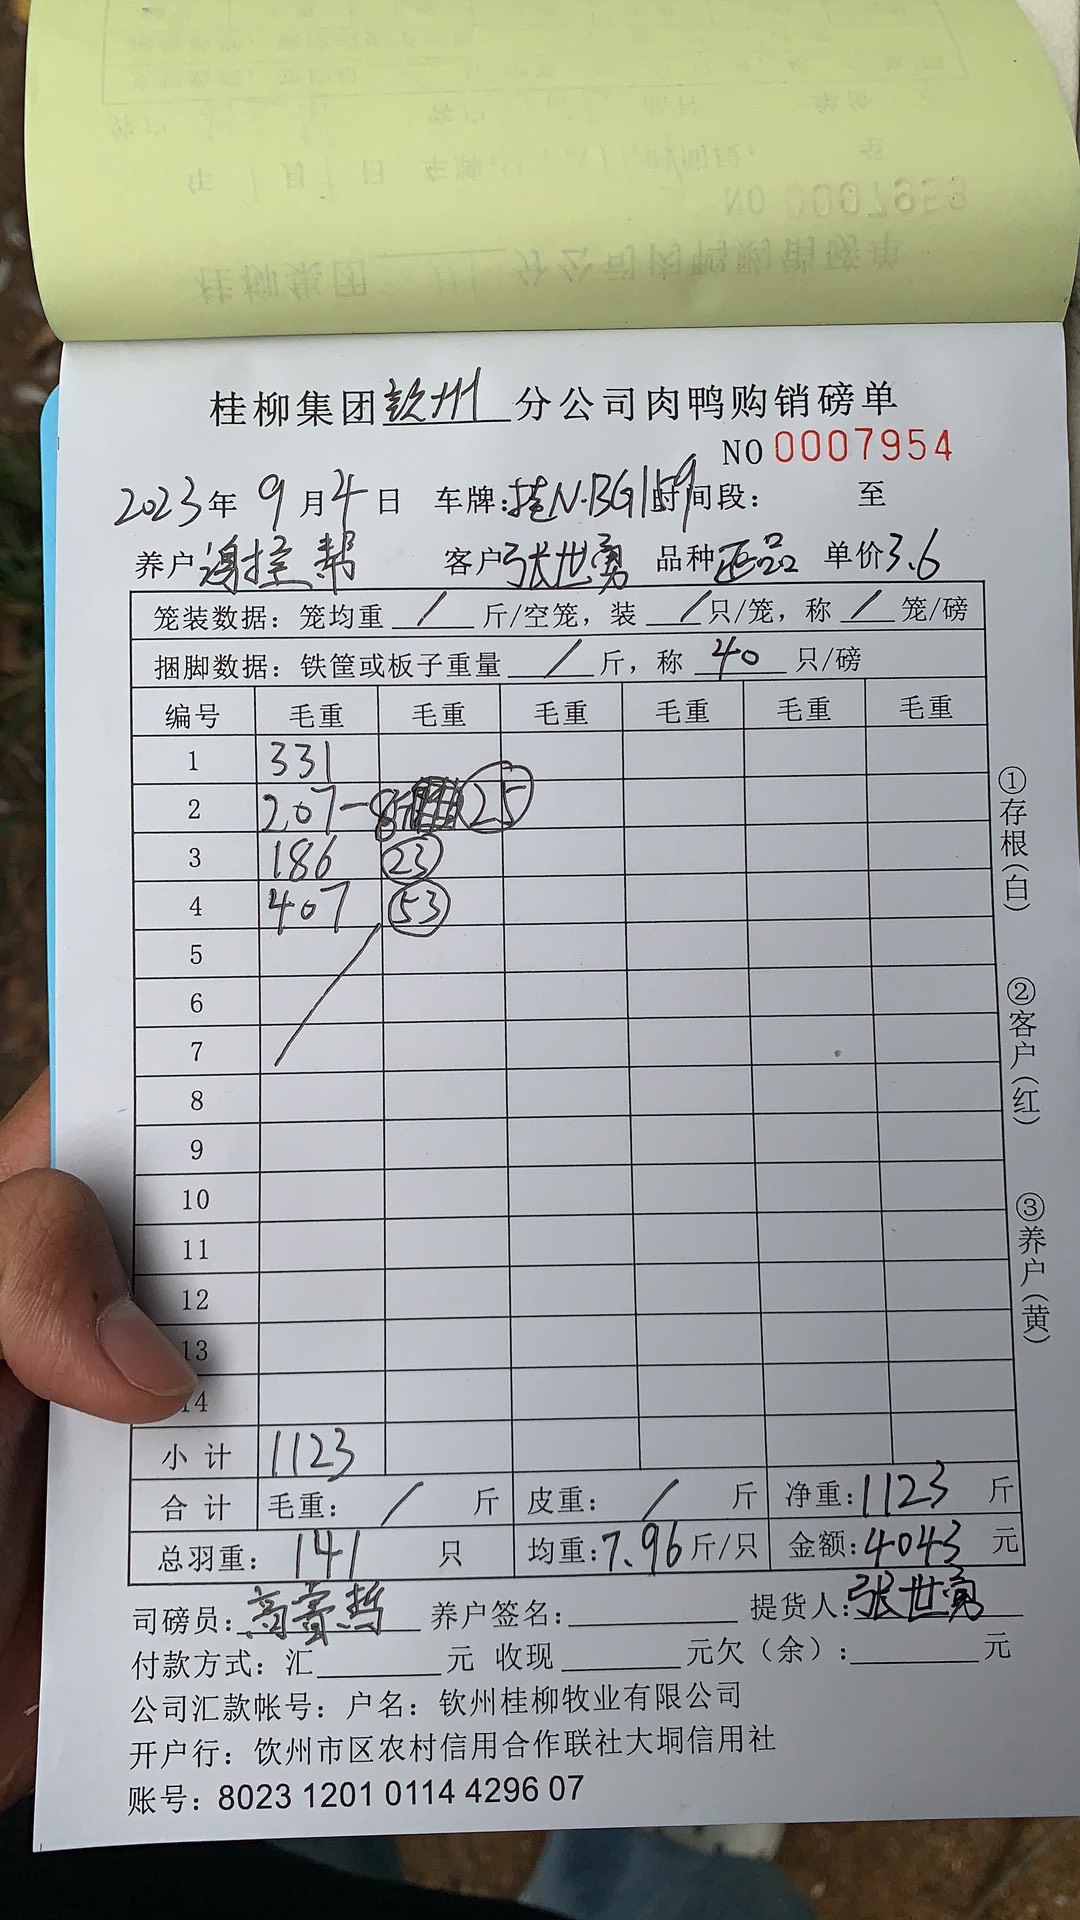 桂柳集团钦州分公司肉鸭购销磅单
NO 0007954
2023年 9月4日 车牌:桂N·BG159时间段: 至
养户谢 帮 客户张世勇 品种正品 单价3.6
笼装数据: 笼均重 / 斤/空笼, 装 / 只/笼, 称 / 笼/磅
捆脚数据: 铁筐或板子重量 / 斤, 称 40 只/磅
编号 毛重 毛重 毛重 毛重 毛重 毛重
1 331
2 207-8 25
3 186 23
4 407 53
5
6
7
8
9
10
11
12
13
14
小计 1123
合计 毛重: / 斤 皮重: / 斤 净重:1123 斤
总羽重: 141 只 均重:7.96斤/只 金额:4043 元
司磅员: 养户签名: 提货人:张世勇
付款方式: 汇 元 收现 元欠(余): 元
公司汇款帐号: 户名: 钦州桂柳牧业有限公司
开户行: 钦州市区农村信用合作联社大垌信用社
账号: 8023 1201 0114 4296 07
①存根(白)
②客户(红)
③养户(黄)